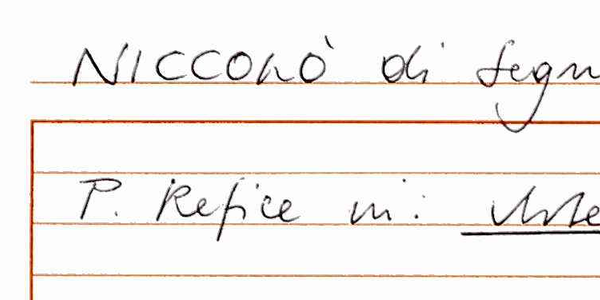 NICCOLÒ di Segn
P. Refice in: